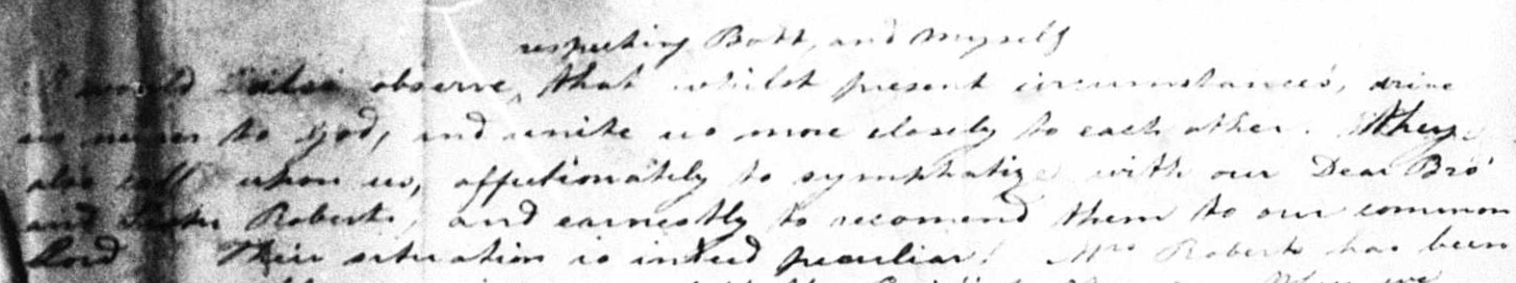 respecting Bott, and myself
I would also observe, that whilst present circumstances, drive
us nearer to God, and unite us more closely to each other. They
also call upon us, affectionately to symphatize with our Dear Bro'
and Sister Roberts, and earnestly to recomend them to our common
Lord Their situation is indeed peculiar! Mrs Roberts has been
we